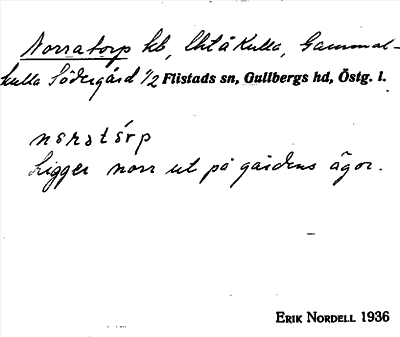 Norratorp hb, Västå Kulla, Gammal-
kulla Södergård 1/2 Flistads sn, Gullbergs hd, Östg. l.
nɷratɷ́rp
Ligger norr ut på gårdens ägor.
ERIK NORDELL 1936